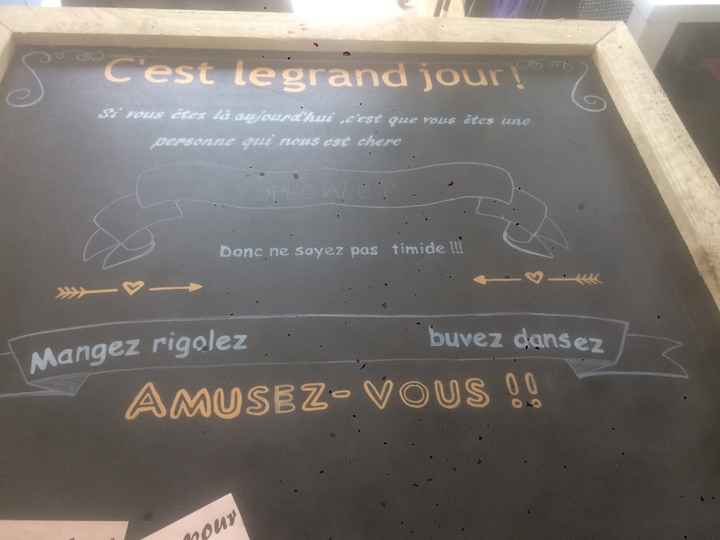 C'est le grand jour!
Si vous êtes là aujourd'hui ,c'est que vous êtes une
personne qui nous est chere
Donc ne soyez pas timide !!!
Mangez rigolez buvez dansez
AMUSEZ-VOUS !!
pour